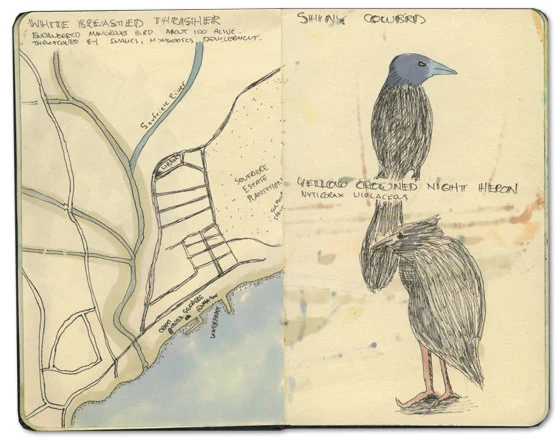 WHITE BREASTED THRASHER
ENDANGERED MANGROVE BIRD. ABOUT 100 ALIVE.
THREATENED BY SNAKES, MONGOOSES, DEVELOPMENT.
Soufriere River
SOUFRIERE
ESTATE
PLANTATION
WATERFRONT
SHINY COWBIRD
YELLOW CROWNED NIGHT HERON
NYTICORAX VIOLACEOUS